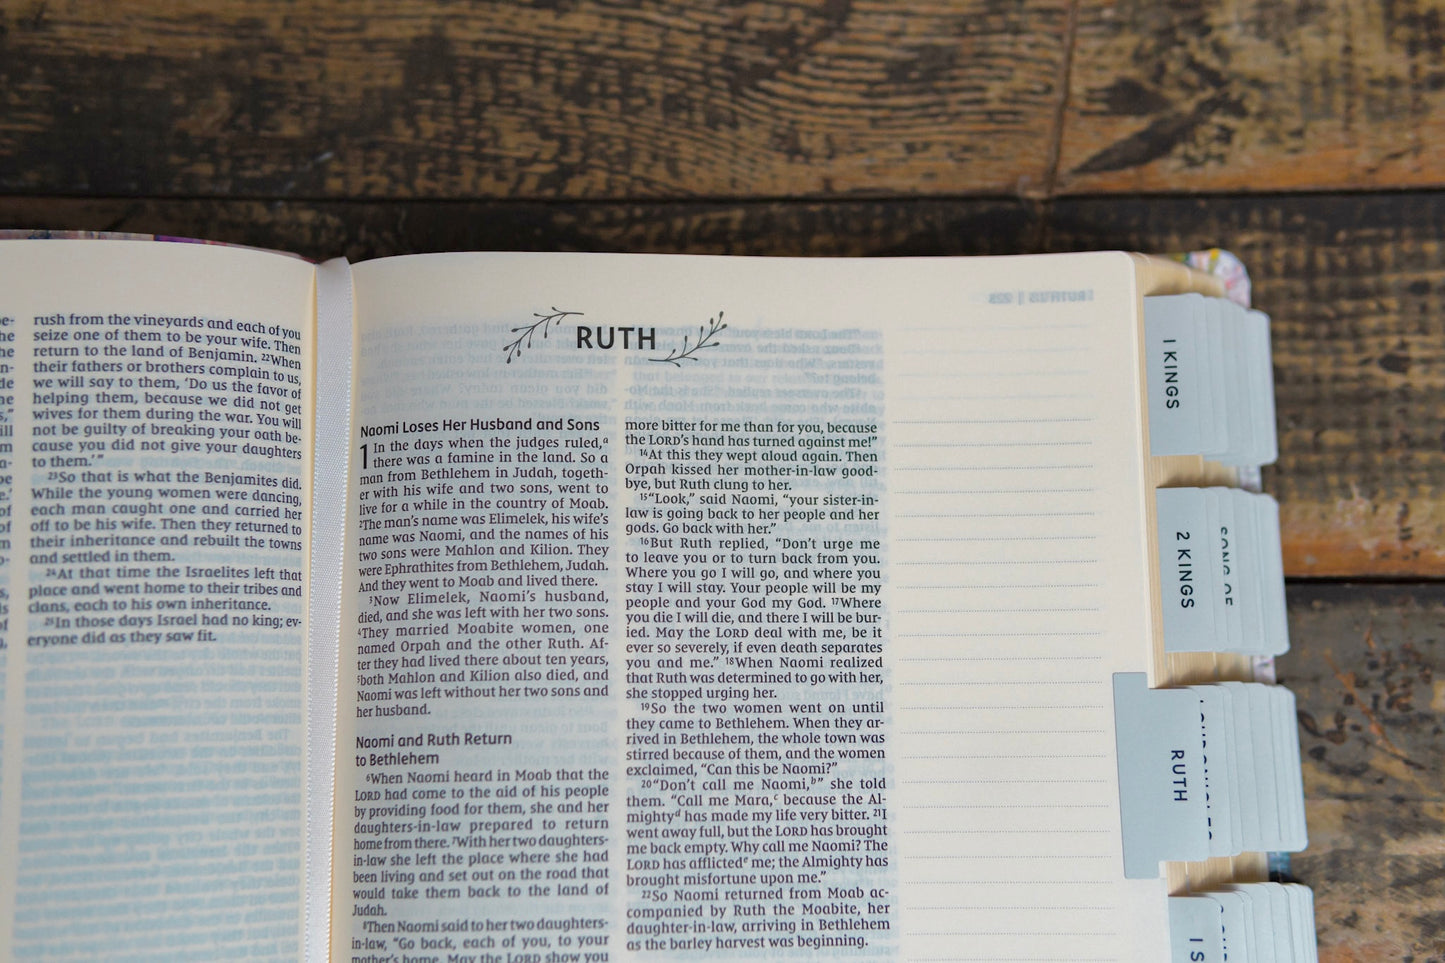 rush from the vineyards and each of you
seize one of them to be your wife. Then
return to the land of Benjamin. ²²When
their fathers or brothers complain to us,
we will say to them, ‘Do us the favor of
helping them, because we did not get
wives for them during the war. You will
not be guilty of breaking your oath be-
cause you did not give your daughters
to them.’”
²³So that is what the Benjamites did.
While the young women were dancing,
each man caught one and carried her
off to be his wife. Then they returned to
their inheritance and rebuilt the towns
and settled in them.
²⁴At that time the Israelites left that
place and went home to their tribes and
clans, each to his own inheritance.
²⁵In those days Israel had no king; ev-
eryone did as they saw fit.
RUTH
Naomi Loses Her Husband and Sons
1 In the days when the judges ruled,ᵃ
there was a famine in the land. So a
man from Bethlehem in Judah, togeth-
er with his wife and two sons, went to
live for a while in the country of Moab.
²The man’s name was Elimelek, his wife’s
name was Naomi, and the names of his
two sons were Mahlon and Kilion. They
were Ephrathites from Bethlehem, Judah.
And they went to Moab and lived there.
³Now Elimelek, Naomi’s husband,
died, and she was left with her two sons.
⁴They married Moabite women, one
named Orpah and the other Ruth. Af-
ter they had lived there about ten years,
⁵both Mahlon and Kilion also died, and
Naomi was left without her two sons and
her husband.
Naomi and Ruth Return
to Bethlehem
⁶When Naomi heard in Moab that the
LORD had come to the aid of his people
by providing food for them, she and her
daughters-in-law prepared to return
home from there. ⁷With her two daughters-
in-law she left the place where she had
been living and set out on the road that
would take them back to the land of
Judah.
⁸Then Naomi said to her two daughters-
in-law, “Go back, each of you, to your
mother’s home. May the LORD show you
more bitter for me than for you, because
the LORD’s hand has turned against me!”
¹⁴At this they wept aloud again. Then
Orpah kissed her mother-in-law good-
bye, but Ruth clung to her.
¹⁵“Look,” said Naomi, “your sister-in-
law is going back to her people and her
gods. Go back with her.”
¹⁶But Ruth replied, “Don’t urge me
to leave you or to turn back from you.
Where you go I will go, and where you
stay I will stay. Your people will be my
people and your God my God. ¹⁷Where
you die I will die, and there I will be bur-
ied. May the LORD deal with me, be it
ever so severely, if even death separates
you and me.” ¹⁸When Naomi realized
that Ruth was determined to go with her,
she stopped urging her.
¹⁹So the two women went on until
they came to Bethlehem. When they ar-
rived in Bethlehem, the whole town was
stirred because of them, and the women
exclaimed, “Can this be Naomi?”
²⁰“Don’t call me Naomi,ᵇ” she told
them. “Call me Mara,ᶜ because the Al-
mightyᵈ has made my life very bitter. ²¹I
went away full, but the LORD has brought
me back empty. Why call me Naomi? The
LORD has afflictedᵉ me; the Almighty has
brought misfortune upon me.”
²²So Naomi returned from Moab ac-
companied by Ruth the Moabite, her
daughter-in-law, arriving in Bethlehem
as the barley harvest was beginning.
I KINGS
2 KINGS
SONG OF
RUTH
I S